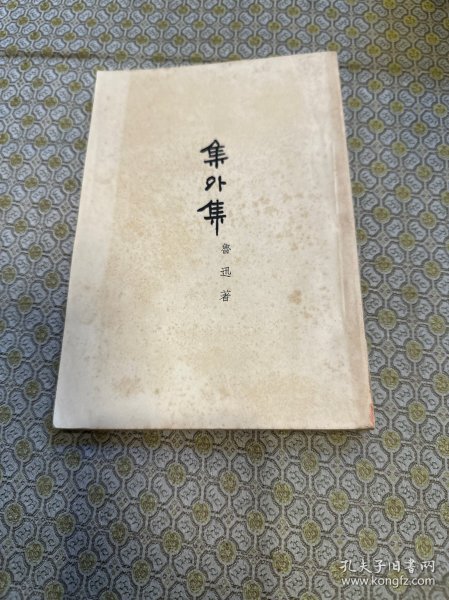 集外集
魯迅著
孔夫子旧书网
www.kongfz.com